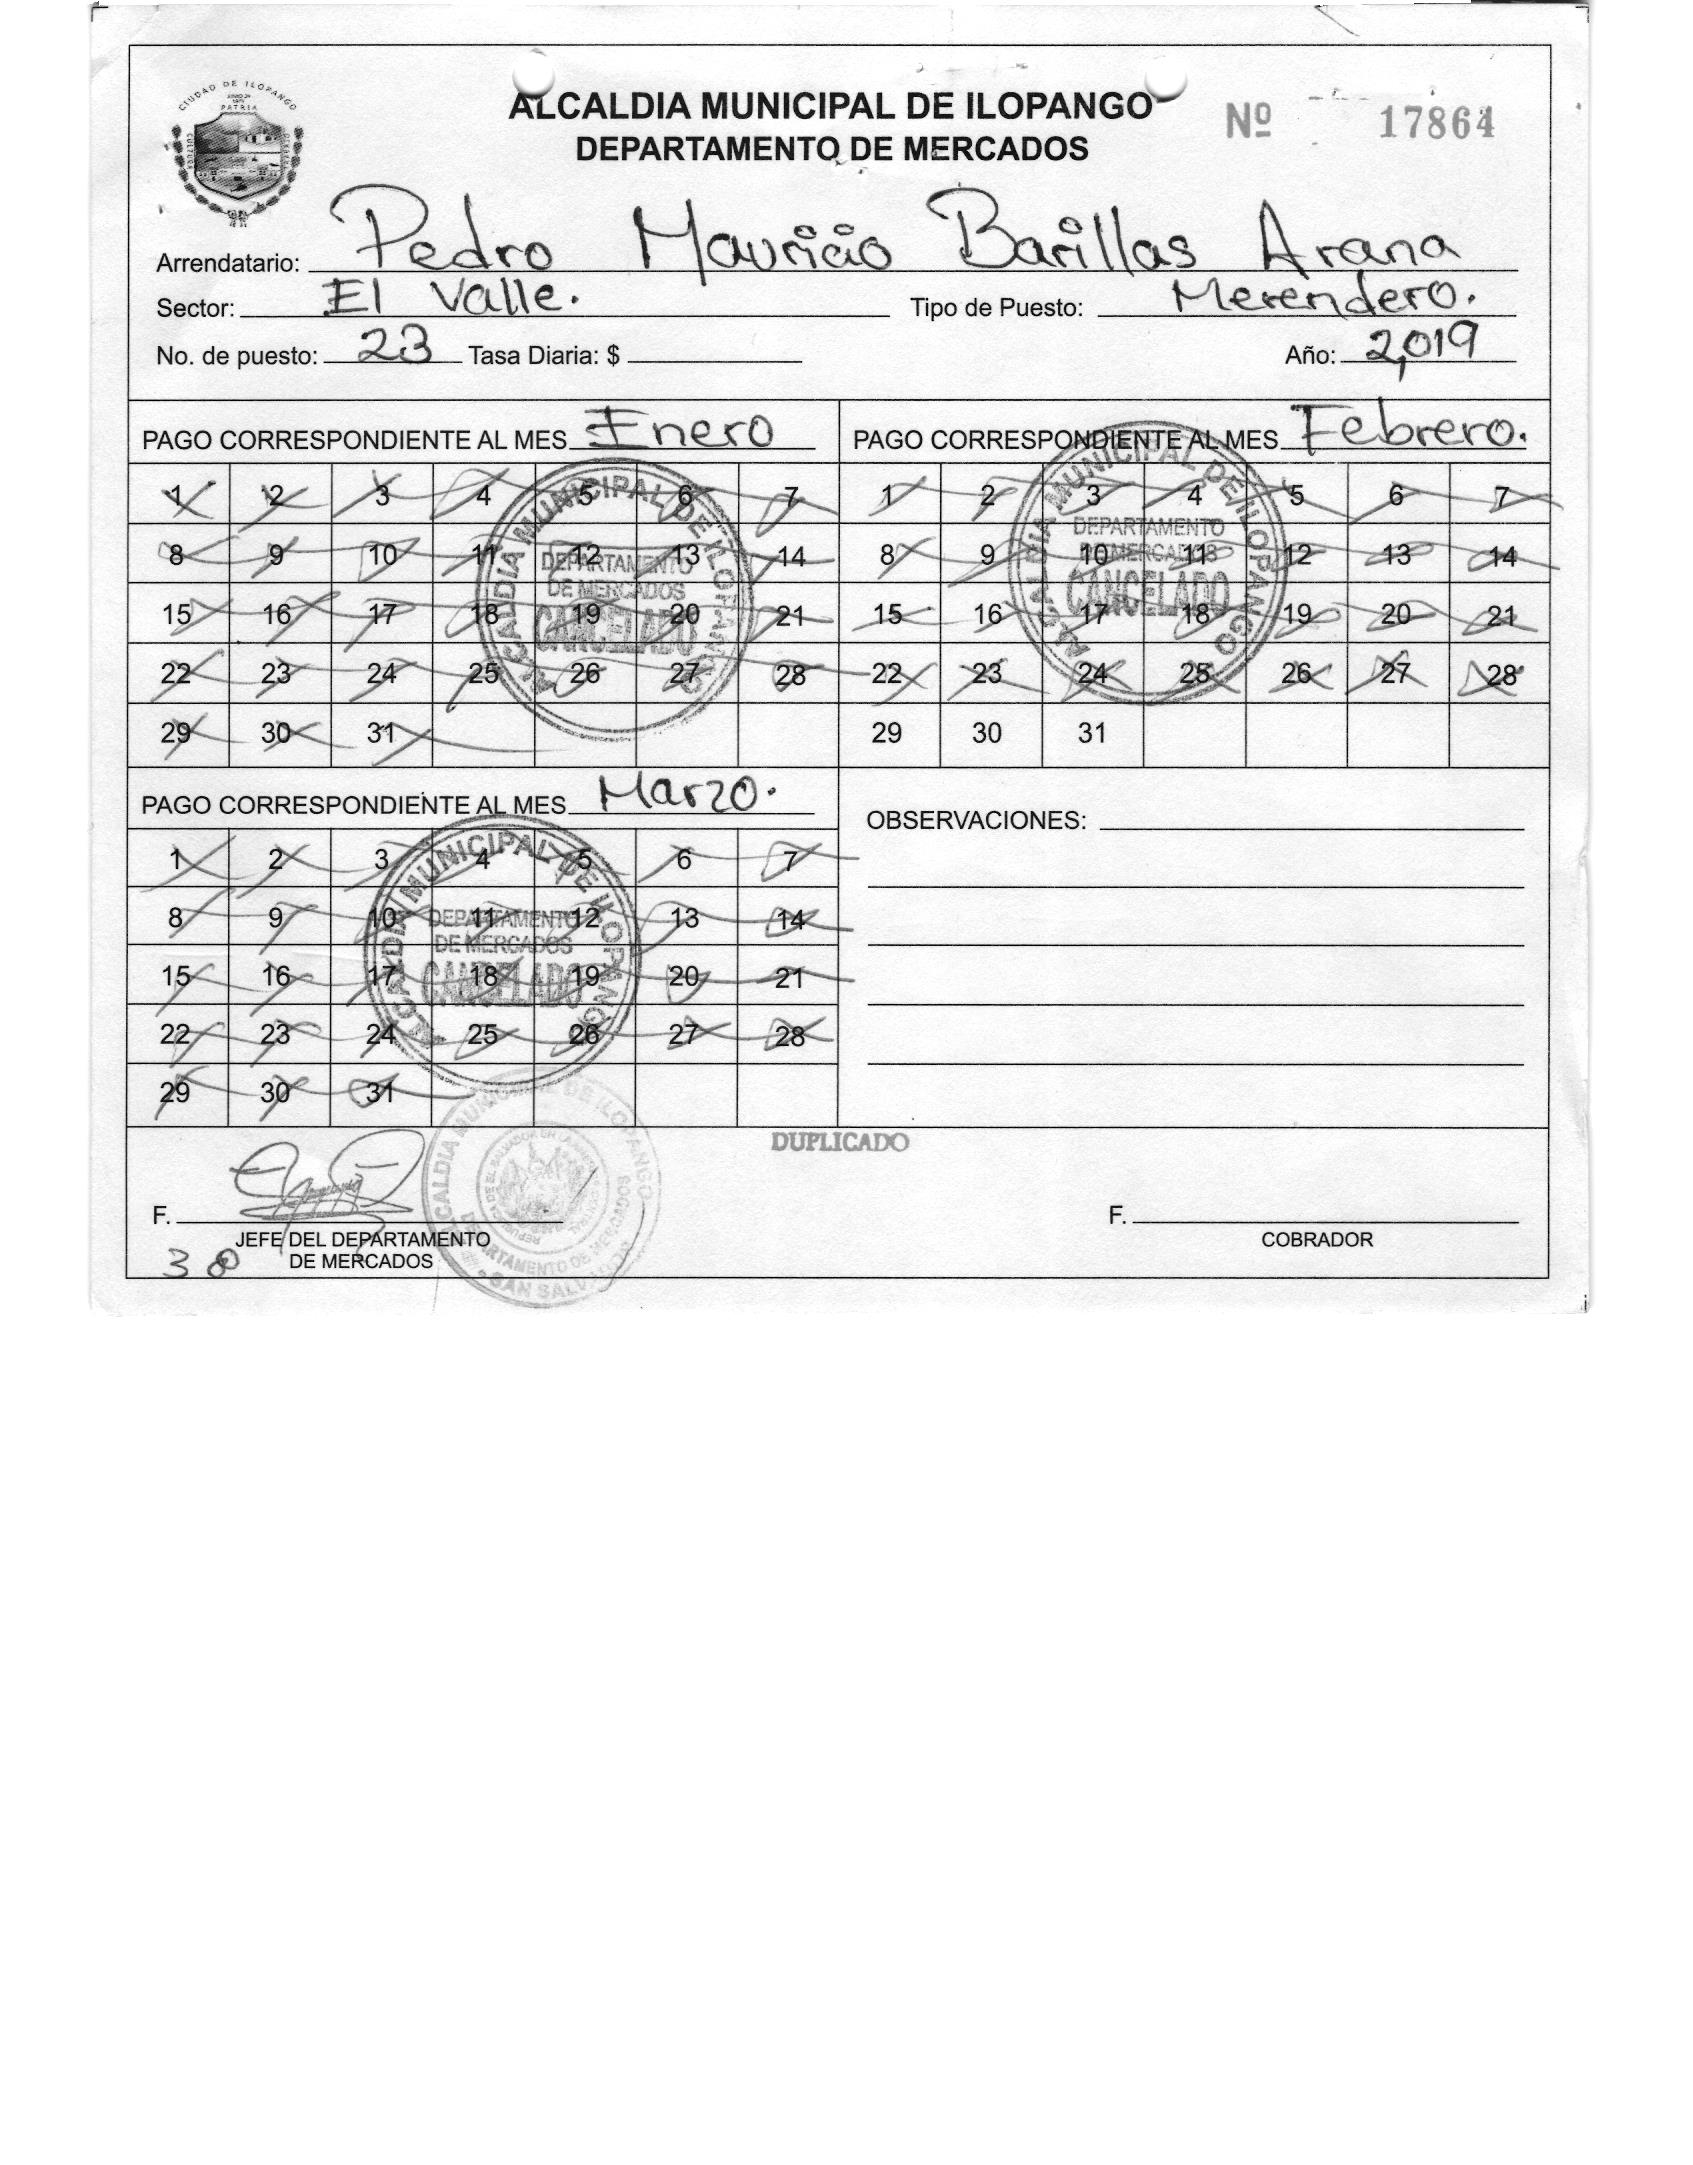 CIUDAD DE ILOPANGO
PATRIA
CULTURA
ALCALDIA MUNICIPAL DE ILOPANGO
DEPARTAMENTO DE MERCADOS
Nº 17864
Arrendatario: Pedro Mauricio Barillas Arana
Sector: El Valle. Tipo de Puesto: Merendero.
No. de puesto: 23 Tasa Diaria: $ Año: 2,019
PAGO CORRESPONDIENTE AL MES Enero
1 2 3 4 5 6 7
8 9 10 11 12 13 14
15 16 17 18 19 20 21
22 23 24 25 26 27 28
29 30 31
ALCALDIA MUNICIPAL DE ILOPANGO
DEPARTAMENTO
DE MERCADOS
CANCELADO
PAGO CORRESPONDIENTE AL MES Febrero.
1 2 3 4 5 6 7
8 9 10 11 12 13 14
15 16 17 18 19 20 21
22 23 24 25 26 27 28
29 30 31
ALCALDIA MUNICIPAL DE ILOPANGO
DEPARTAMENTO
DE MERCADOS
CANCELADO
PAGO CORRESPONDIENTE AL MES Marzo.
1 2 3 4 5 6 7
8 9 10 11 12 13 14
15 16 17 18 19 20 21
22 23 24 25 26 27 28
29 30 31
ALCALDIA MUNICIPAL DE ILOPANGO
DEPARTAMENTO
DE MERCADOS
CANCELADO
OBSERVACIONES:
DUPLICADO
F.
JEFE DEL DEPARTAMENTO
DE MERCADOS
38
ALCALDIA MUNICIPAL DE ILOPANGO
DEPARTAMENTO DE MERCADOS
SAN SALVADOR
F.
COBRADOR